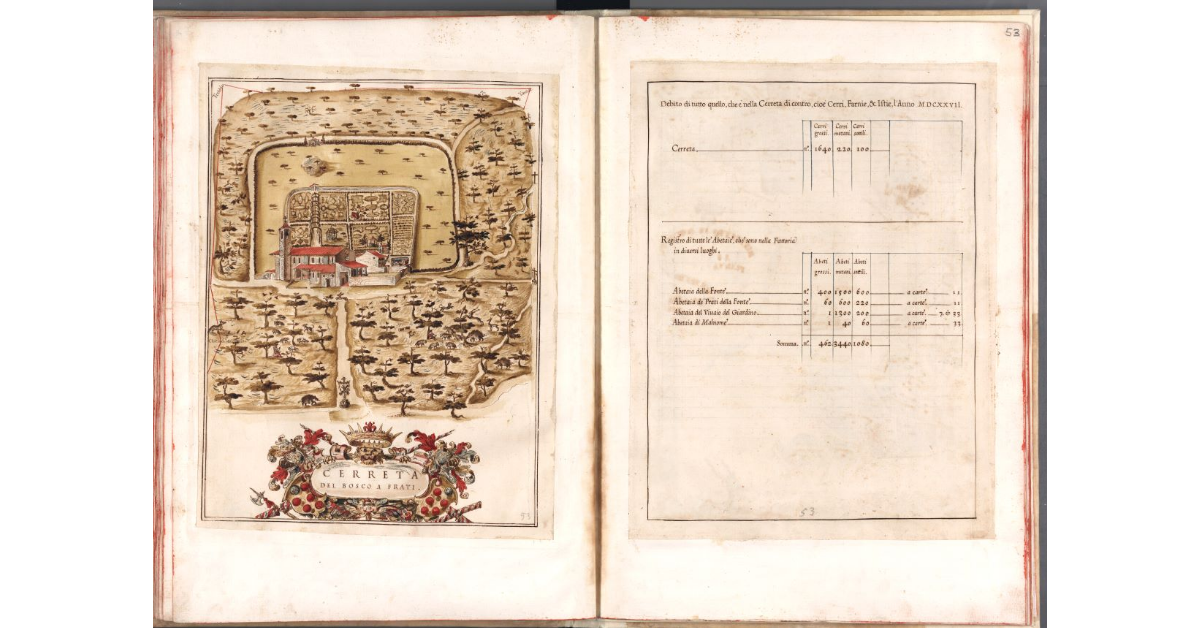 CERRETA
DEL BOSCO A FRATI.
53
53
Debito di tutto quello, che è nella Cerreta di contro, cioè Cerri, Farnie, & Istie, l'Anno M.DCXXVII.
Cerri grossi. Cerri mezani. Cerri sottili.
Cerreta n.° 1640 220 100
Registro di tutte le Abetaie, che sono nella Fattoria
in diversi luoghi.
Abeti grossi. Abeti mezani. Abeti sottili.
Abetaia della Fonte n.° 400 1500 600 a carte 11
Abetaia de Prati della Fonte n.° 60 600 220 a carte 11
Abetaia del Vivaio del Giardino n.° 1 1300 200 a carte 33
Abetaia di n.° 1 40 60 a carte 33
Somma. n.° 462 3440 1080
53